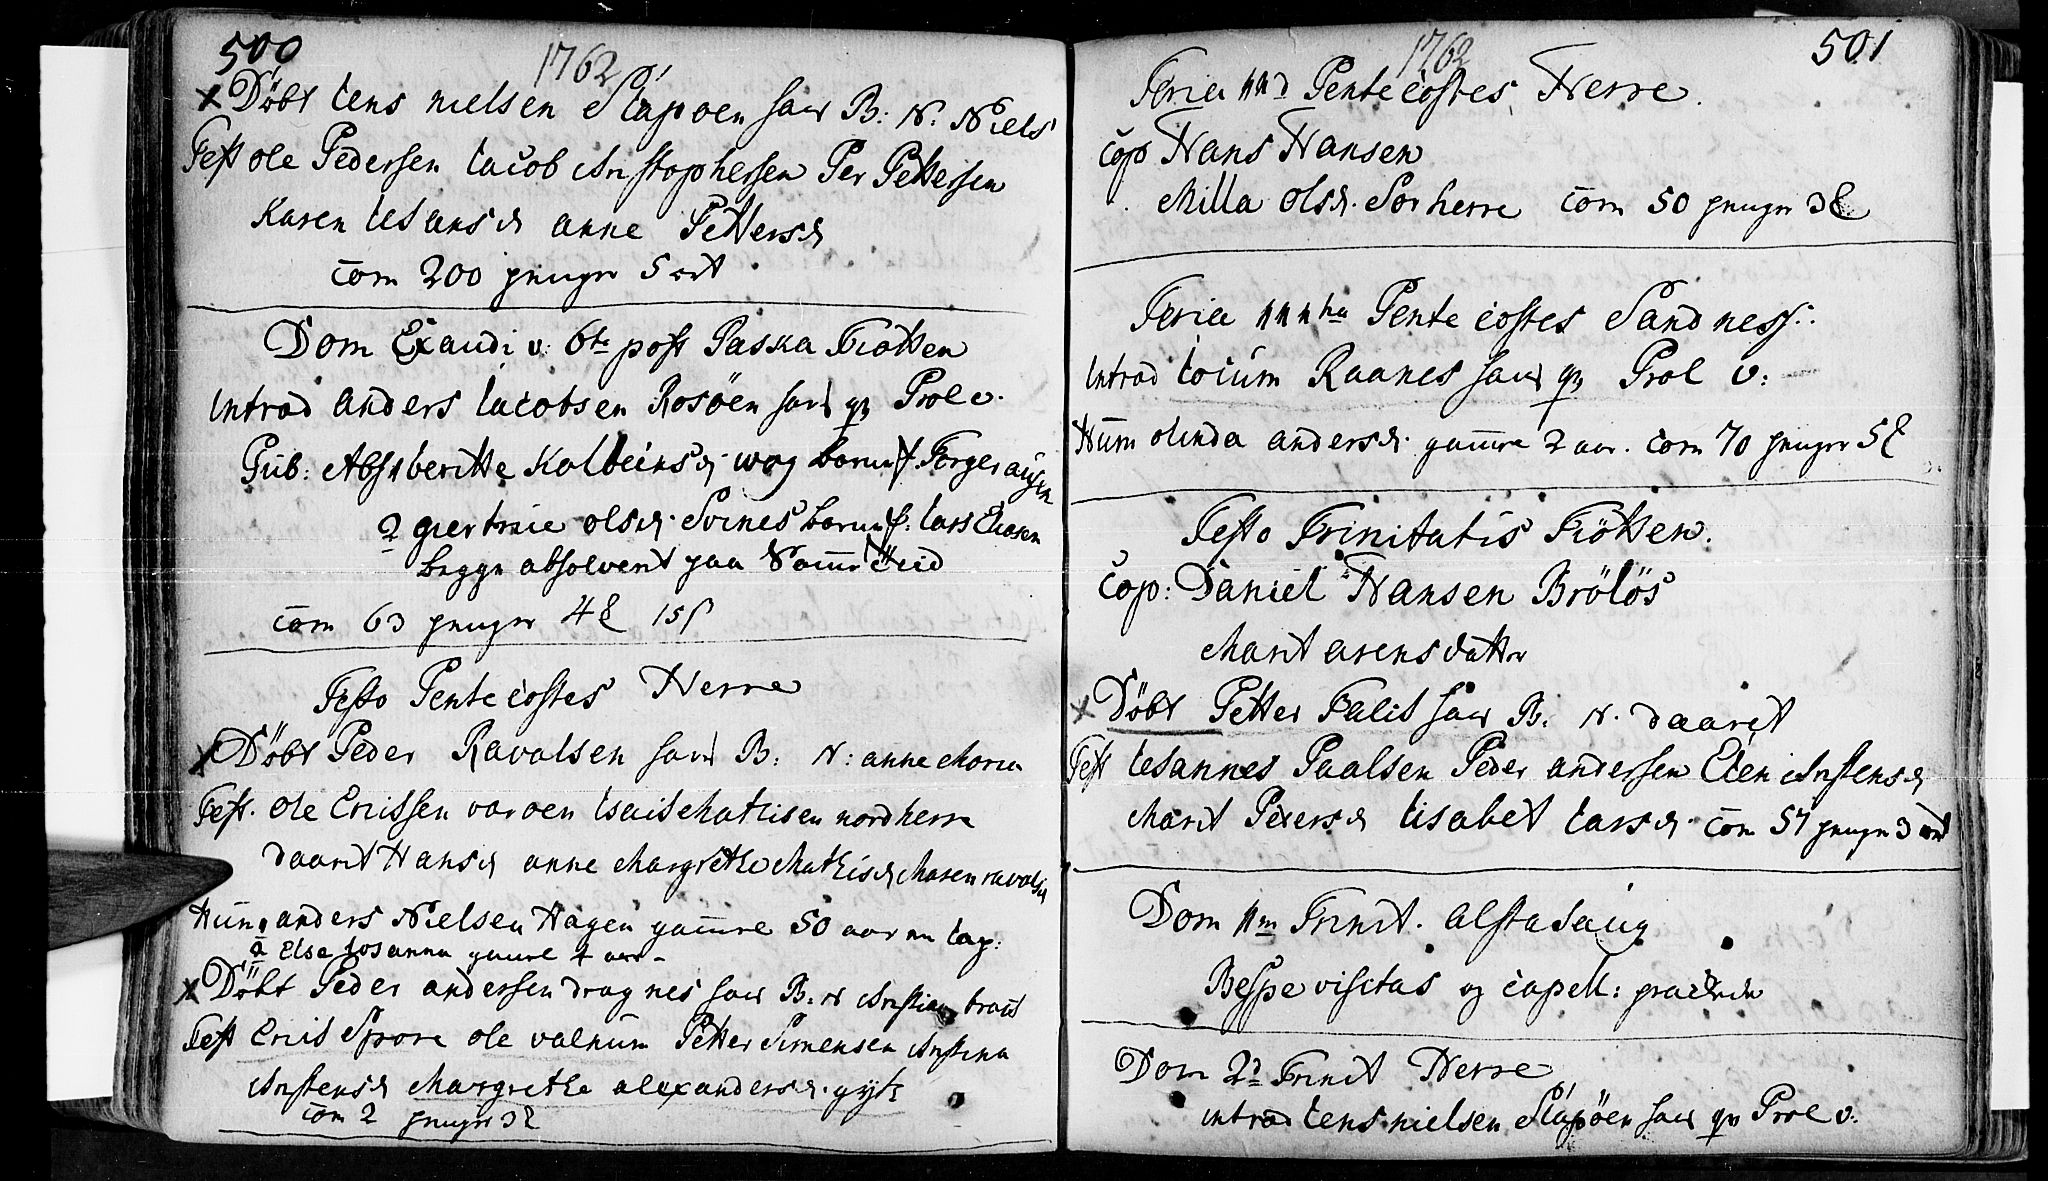 500
1762
Døbt Jens Nielsen Slapøen hans B: N: Niels
Test ole Pedersen Jacob Christophersen Per Pettersen
Karen anne Pettersd
Com 200 penger 5 ort
Dom Exaudi v: 6te post Paska Tiøtten
Introd anders Jacobsen Rosøen hans qv Prol v.
Pub: Abs 1 beritte Kolbeinsd.
2 giertruie olsd. Svines barnef: Lars
begge absolverit paa
Com 63 penger 4 15
Festo Pentecostes Herre
Døbt Peder Ravalsen hans B: N: anne Maria
Test. Ole Erichsen varøen Isach Mathisen nordherre
daarit Hansd anne Margrethe Mathisd Maren ravalsd
Hum 1 anders Nielsen Hagen gammel 50 aar
2 Else Susanna gamel 4 aar
Døbt Peder andersen dragnes hans B: N Christian
Test Erich Spore ole valnum Petter Simensen Christina
Christensd Margrethe alexandersd.
Com 2 penger 3
501
1762
Feria 2nd Pentecostes Herre.
Cop Hans Hansen
Milla olsd. Sørherre Com 50 penger 3
Feria 3tia Pentecostes Sandness.
Introd Jocum Raanes hans qv Prol v:
Hum olinda andersd. gamel 2 aar. Com 70 penger 5
Festo Trinitatis Tiötten.
Cop: Daniel Hansen Brölös
Marit arensdatter
Døbt Petter Falch hans B: N. daarit
Test Johannes Paalsen Peder andersen Elen Christensd
Marit Petersd Lisabet Larsd. Com 57 penger 3 ort
Dom 1m Trinit. Alstahaug
Bispe visitas og Capell: prædikede
Dom 2d Trinit Herre
introd Jens nielsen Slapöen hans qv Prol v: